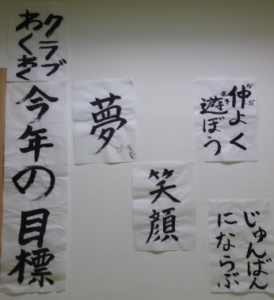 クラブ
わくわく
今年の目標
夢
笑顔
仲よく
遊ぼう
じゅんばん
にならぶ